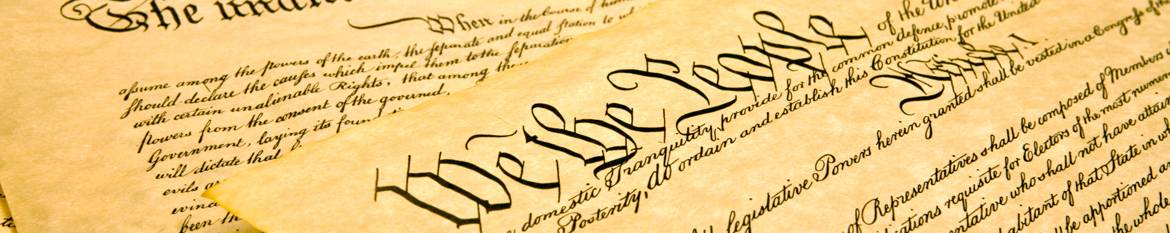 The unani
When in the Course of hum
assume among the powers of the earth, the separate and equal station to wh
should declare the causes which impel them to the separation
with certain unalienable Rights, that among these
powers from the consent of the governed,
Government, laying its foun
will dictate that
evils a
evinc
been th
We the People
of the Un
domestic Tranquility, provide for the common defence, promote
Posterity, do ordain and establish this Constitution for the United
Article I
legislative Powers herein granted shall be vested in a Congress of the
of Representatives shall be composed of Members
ications requisite for Electors of the most numer
entative who shall not have attai
abitant of that State in w
all be apportioned a
the whole